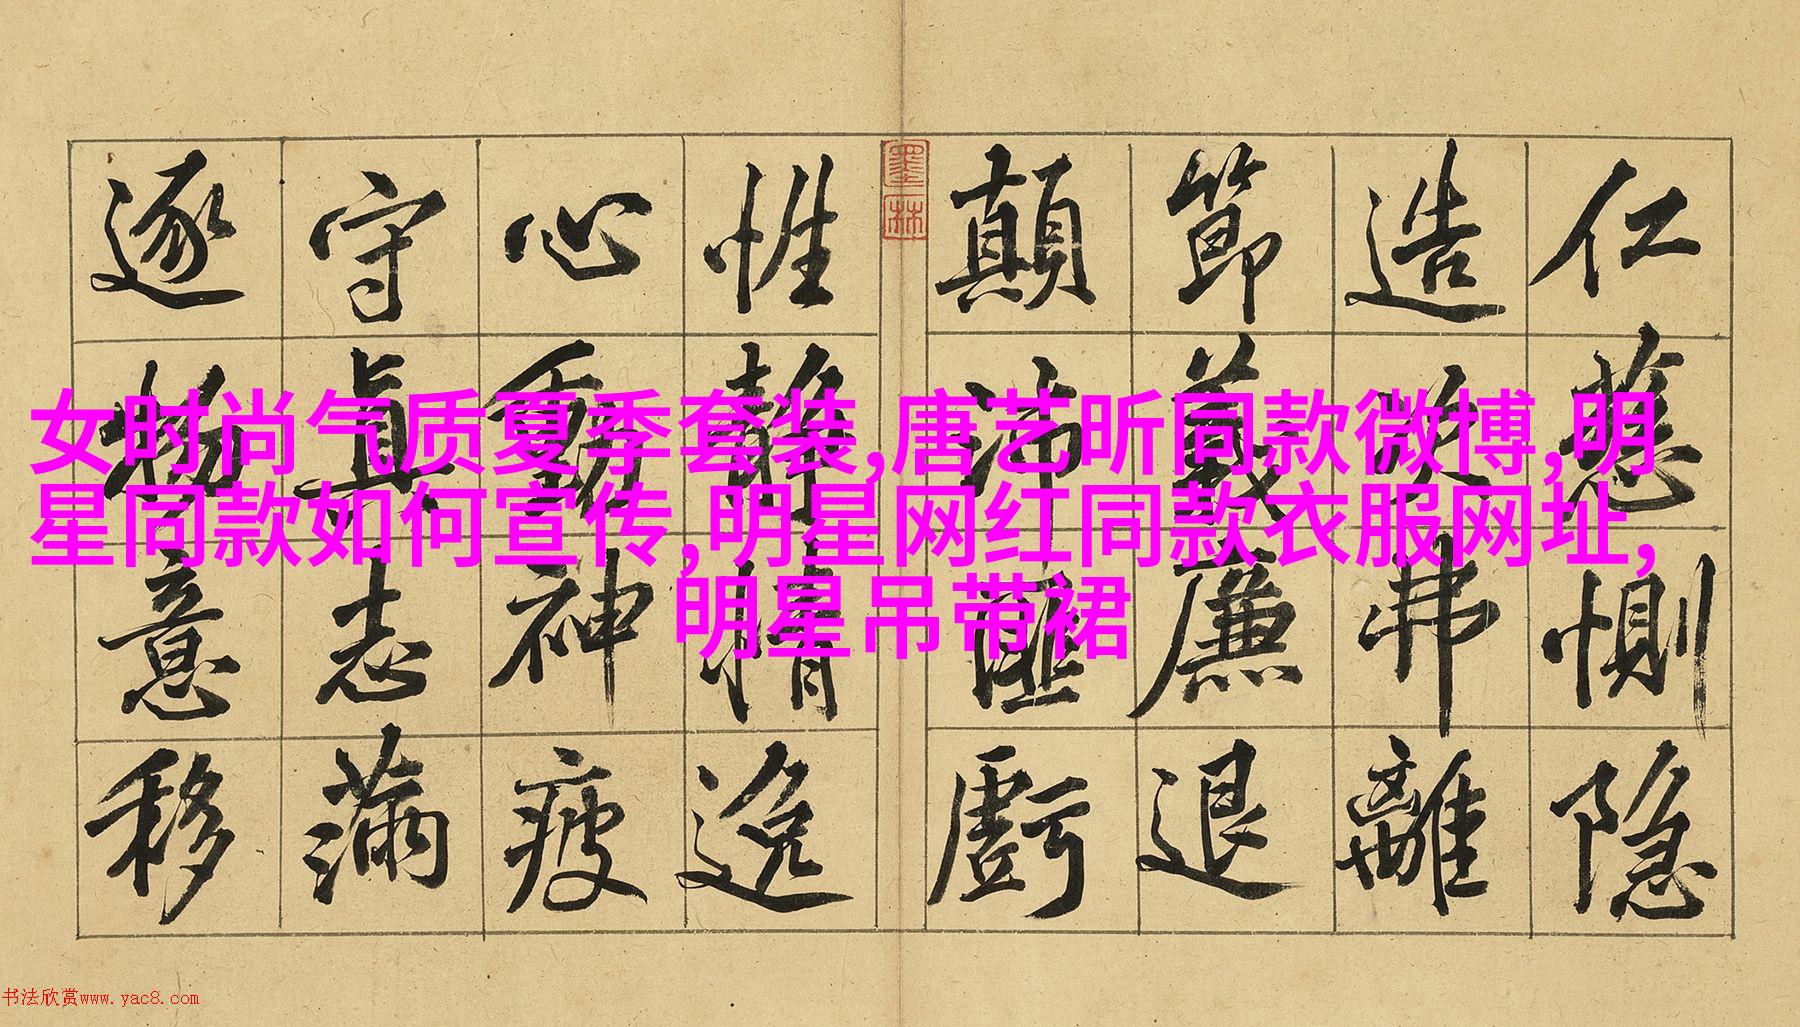 仁慈惻隐
造次弗離
節義廉退
顛沛匪虧
墨林
性靜情逸
心動神疲
守真志滿
逐物意移
女时尚气质夏季套装,唐艺昕同款微博,明
星同款如何宣传,明星网红同款衣服网址,
明星吊带裙
书法欣赏www.yac8.com